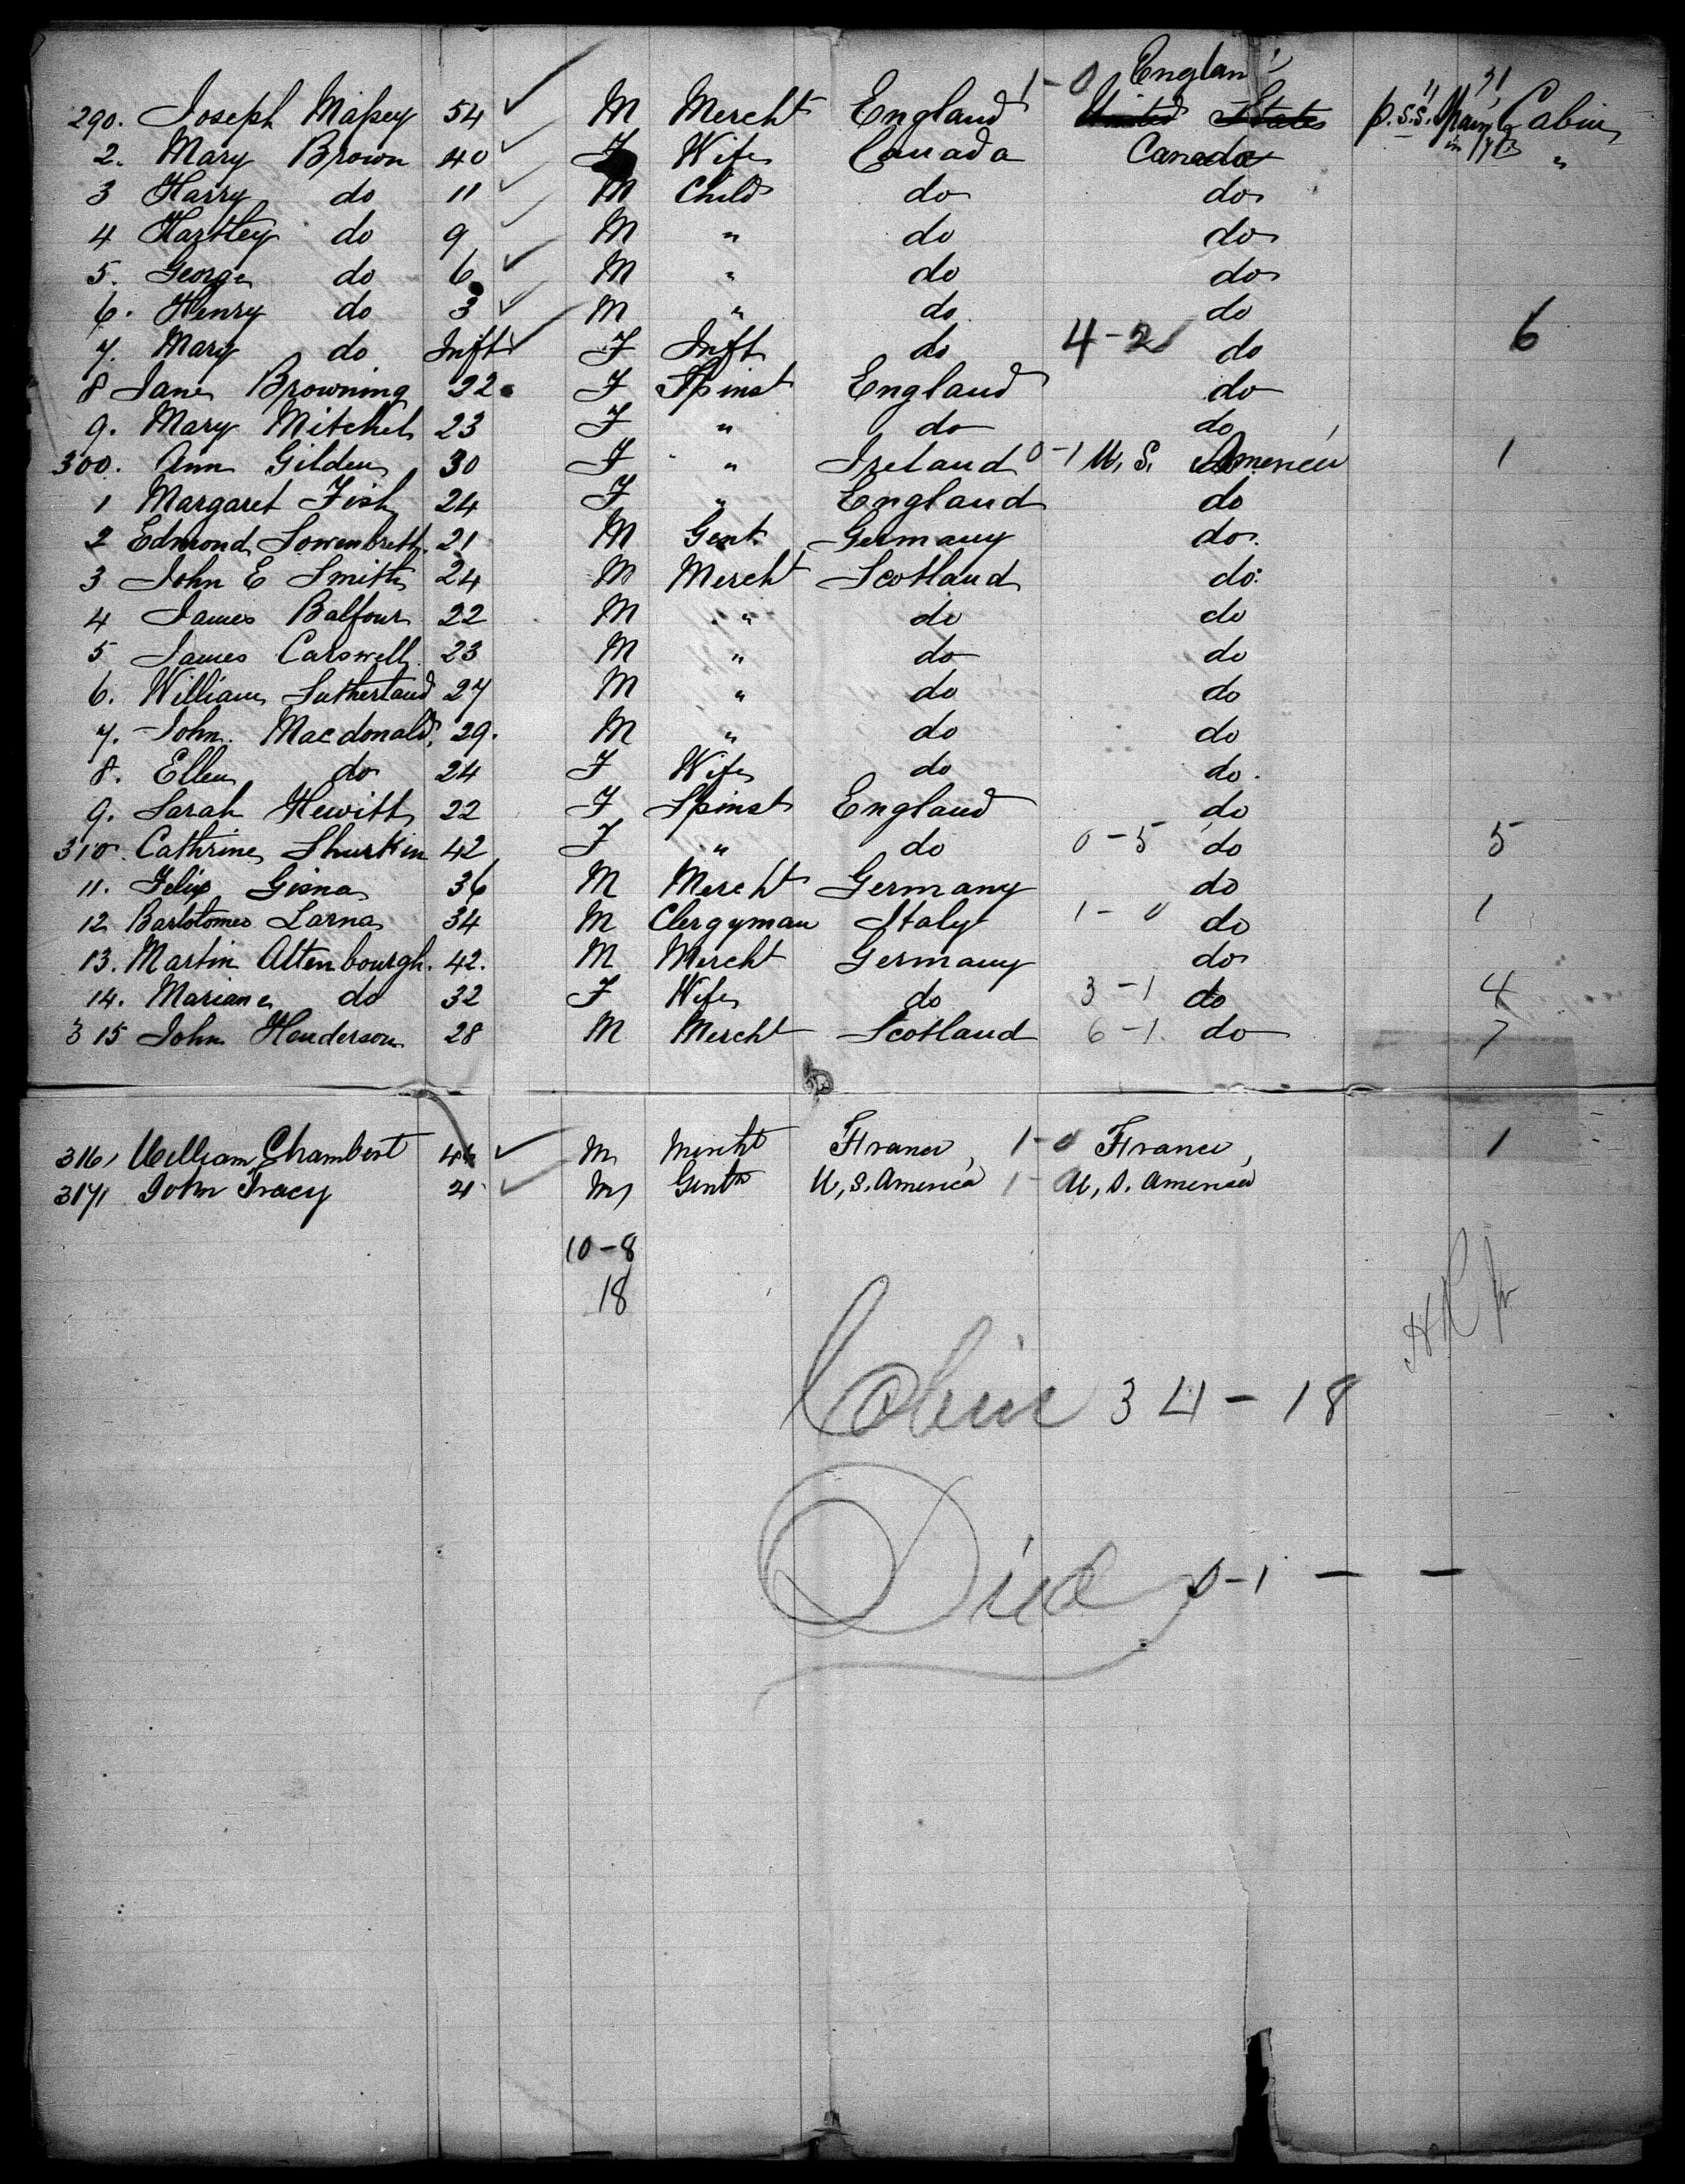 Englan
290. Joseph Massey 54 ✓ M Mercht England 1-0 ~~United States~~ p. S.S. Spain Cabin
2. Mary Brown 40 ✓ F Wife Canada Canada "
3 Harry do 11 ✓ M Child do do
4 Hartley do 9 ✓ M " do do
5. George do 6 ✓ M " do do
6. Henry do 3 ✓ M " do do
7. Mary do Inft ✓ F Inft do 4-2 do 6
8 Jane Browning 22 F Spinst England do
9. Mary Mitchel 23 F " do do
300. Ann Gilden 30 F " Ireland 0-1 U. S. America 1
1 Margaret Fish 24 F " England do
2 Edmond Lowenbreth 21 M Gent Germany do
3 John E Smith 24 M Mercht Scotland do
4 James Balfour 22 M " do do
5 James Carswell 23 M " do do
6. William Sutherland 27 M " do do
7. John Macdonald. 29. M " do do
8. Ellen do 24 F Wife do do.
9. Sarah Hewitt 22 F Spinst England do
310. Cathrine Shurkin 42 F " do 0-5 do 5
11. Felix Gisna 36 M Mercht Germany do
12 Bartolomeo Larna 34 M Clergyman Italy 1-0 do 1
13. Martin Altenbourgh. 42. M Mercht Germany do
14. Mariane do 32 F Wife do 3-1 do 4
315 John Henderson 28 M Mercht Scotland 6-1. do 7
316, William Chambert 44 ✓ M Mercht France, 1-0 France, 1
317, John Tracy 21 ✓ M Gent U, S. America 1- U, S. America
10-8
18
Cabin 34-18
Died 0-1 — —